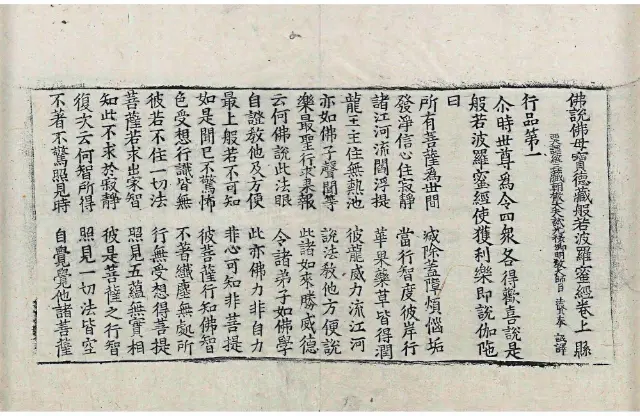 佛說佛母寶德藏般若波羅蜜經卷上 縣
西天譯經三藏朝散大夫試光祿卿明教大師臣 法賢 奉 詔譯
行品第一
尒時世尊為令四眾各得歡喜說是
般若波羅蜜經使獲利樂即說伽陁
曰
所有菩薩為世間 滅除蓋障煩惱垢
發淨信心住寂靜 當行智度彼岸行
諸江河流閻浮提 華果藥草皆得潤
龍王主住無熱池 彼龍威力流江河
亦如佛子聲聞等 說法教他方便說
樂最聖行求果報 此諸如來勝威德
云何佛說此法眼 令諸弟子如佛學
自證教他及方便 此亦佛力非自力
最上般若不可知 非心可知非菩提
如是聞已不驚怖 彼菩薩行知佛智
色受想行識皆無 不著纖塵無處所
彼若不住一切法 行無受想得菩提
菩薩若求出家智 照見五蘊無實相
知此不求於寂靜 彼是菩薩之行智
復次云何智所得 照見一切法皆空
不著不驚照見時 自覺覺他諸菩薩